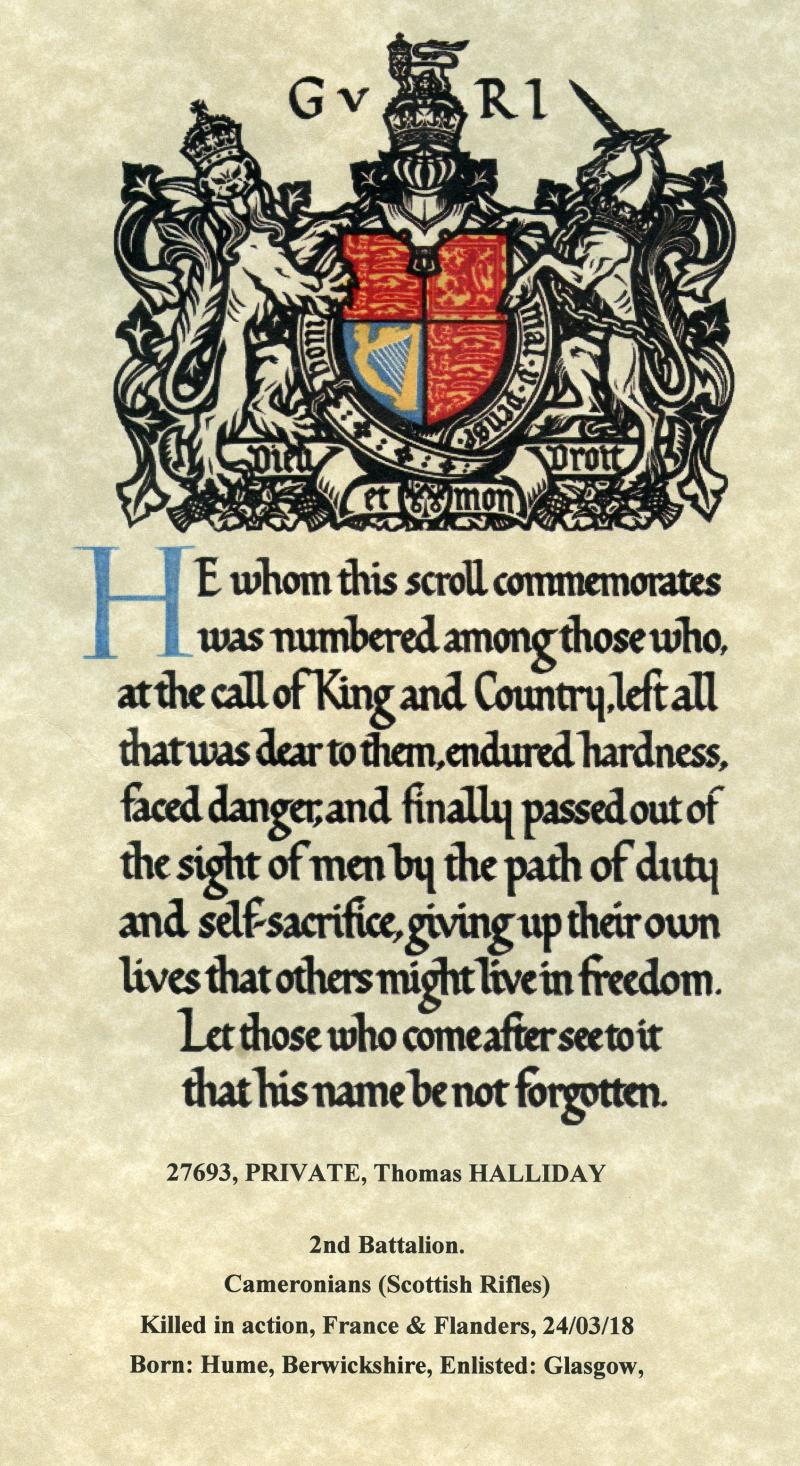 G V R I
hom mal · y · pense
Dieu Droit
et mon
HE whom this scroll commemorates
was numbered among those who,
at the call of King and Country, left all
that was dear to them, endured hardness,
faced danger, and finally passed out of
the sight of men by the path of duty
and self-sacrifice, giving up their own
lives that others might live in freedom.
Let those who come after see to it
that his name be not forgotten.
27693, PRIVATE, Thomas HALLIDAY
2nd Battalion.
Cameronians (Scottish Rifles)
Killed in action, France & Flanders, 24/03/18
Born: Hume, Berwickshire, Enlisted: Glasgow,